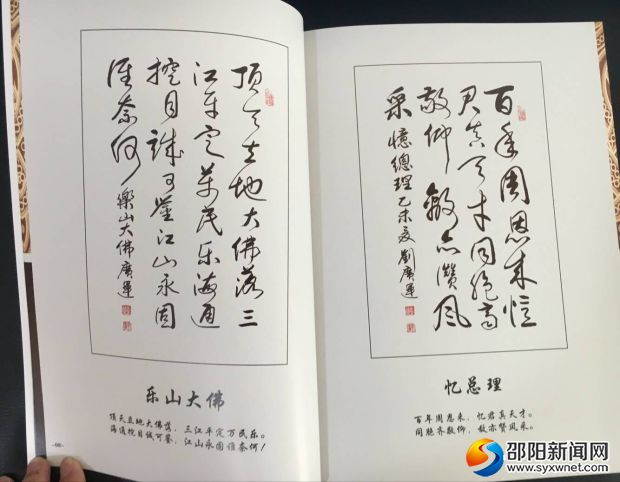 顶天立地大佛落三
江平定万民乐海通
挖目诚可鉴江山永固
谁奈何
樂山大佛廣運
乐山大佛
顶天立地大佛落，三江平定万民乐。
海通挖目诚可鉴，江山永固谁奈何！
-08-
百年周恩来忆
君真天才同胞齐
敬仰敌亦赞风
采憶總理乙未夏劉廣運
忆总理
百年周恩来，忆君真天才。
同胞齐敬仰，敌亦赞风采。
邵阳新闻网
www.syxwnet.com